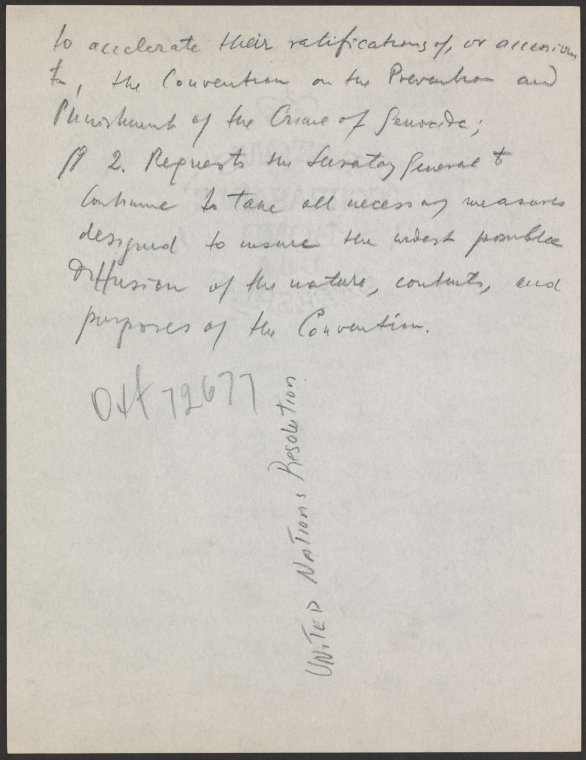 to accelerate their ratifications of, or accessions
to, the Convention on the Prevention and
Punishment of the Crime of Genocide;
2. Requests the Secretary General to
continue to take all necessary measures
designed to insure the widest possible
diffusion of the nature, contents, and
purposes of the Convention.
72677
UNITED NATIONS Resolution